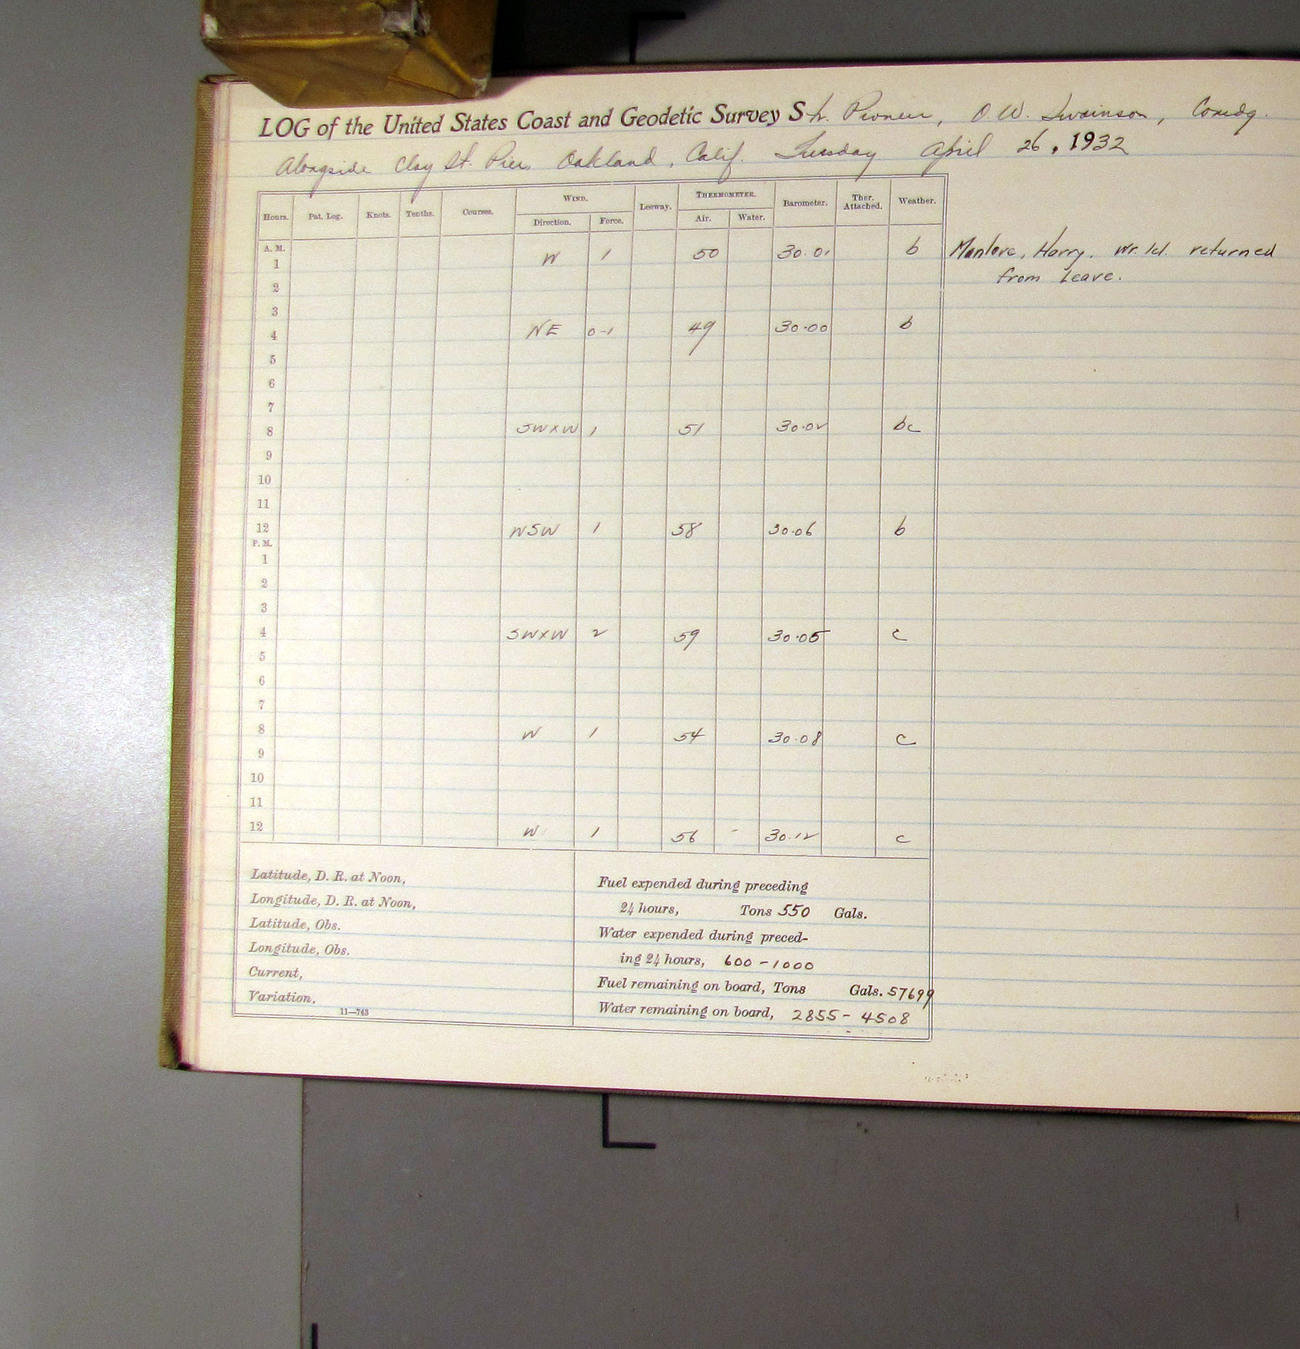 LOG of the United States Coast and Geodetic Survey Str. Pioneer, O.W. Swainson, Comdg.
Alongside Clay St. Pier, Oakland, Calif. Tuesday April 26, 1932
Hours. Pat. Log. Knots. Tenths. Courses. WIND. Leeway. THERMOMETER. Barometer. Ther. Attached. Weather.
Direction. Force. Air. Water.
A. M.
1 W 1 50 30.01 b Manlove, Harry. Wr. 1cl. returned
2 from leave.
3
4 NE 0-1 49 30.00 b
5
6
7
8 SWxW 1 51 30.02 bc
9
10
11
12 WSW 1 58 30.06 b
P. M.
1
2
3
4 SWxW 2 59 30.05 c
5
6
7
8 W 1 54 30.08 c
9
10
11
12 W 1 56 - 30.12 c
Latitude, D. R. at Noon,
Longitude, D. R. at Noon,
Latitude, Obs.
Longitude, Obs.
Current,
Variation,
11—743
Fuel expended during preceding
24 hours, Tons 550 Gals.
Water expended during preced-
ing 24 hours, 600 - 1000
Fuel remaining on board, Tons Gals. 57699
Water remaining on board, 2855 - 4508